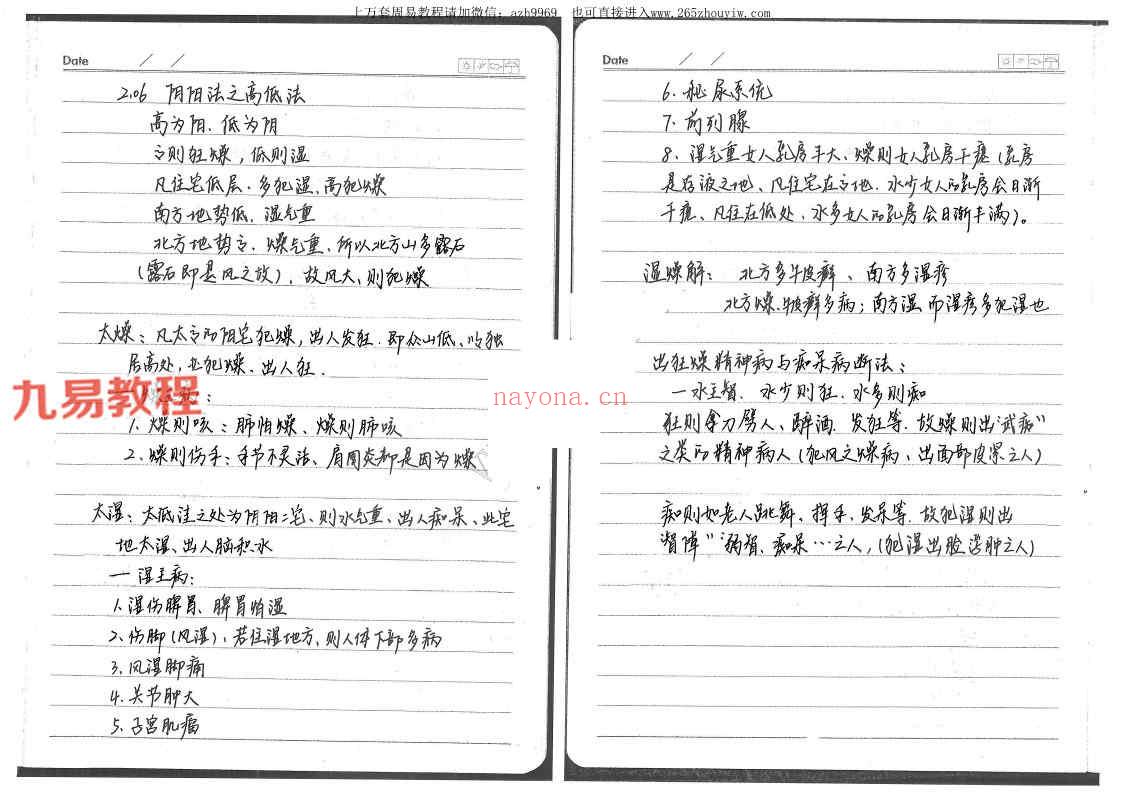 上万套周易教程请加微信：azh9969，也可直接进入www.265zhouyiw.com
Date / /
2.06 阴阳法之高低法
高为阳．低为阴
高则狂燥，低则湿
凡住宅低层．多犯湿、高犯燥
南方地势低．湿气重
北方地势高．燥气重、所以北方山多露石
（露石即是风之故），故风大、则犯燥
太燥：凡太高的阴宅犯燥，出人发狂．即众山低、唯独
居高处，也犯燥、出人狂．
1．燥则咳：肺怕燥、燥则肺咳
2．燥则伤手：手节不灵活、肩周炎都是因为燥
太湿：太低洼之处为阴阳二宅、则水气重、出人痴呆、此宅
地太湿、出人脑积水
一湿主病：
1．湿伤脾胃、脾胃怕湿
2、伤脚（风湿），若住湿地方，则人体下部多病
3、风湿脚痛
4、关节肿大
5、子宫肌瘤
九易教程
nayona.cn
Date / /
6．秘尿系统
7．前列腺
8、湿气重女人乳房丰大、燥则女人乳房干瘪（乳房
是存液之地、凡住宅在高地．水少女人的乳房会日渐
干瘪、凡住在低处、水多女人的乳房会日渐丰满）。
湿燥解：北方多牛皮癣、南方多湿疹
北方燥、牛皮癣多病；南方湿而湿疹多犯湿也
出狂燥精神病与痴呆病断法：
一水主智．水少则狂．水多则痴
狂则拿刀劈人、醉酒．发狂等．故燥则出“武病”
之类的精神病人（犯风之燥病、出面部皮紧之人）
痴则如老人跳舞、挥手、发呆等．故犯湿则出
“智障”“弱智、痴呆…之人，（犯湿出脸浮肿之人）